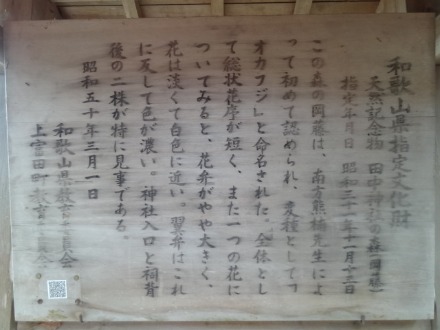 和歌山県指定文化財
天然記念物 田中神社の森(岡藤)
指定年月日 昭和三十一年十一月十二日
この森の岡藤は、南方熊楠先生によ
って初めて認められ、変種として「
オカフジ」と命名された。全体とし
て総状花序が短く、また一つの花に
ついてみると、花弁がやや大きく、
花は淡くて白色に近い。翼弁はこれ
に反して色が濃い。神社入口と祠背
後の二株が特に見事である。
昭和五十年三月一日
和歌山県教育委員会
上富田町教育委員会